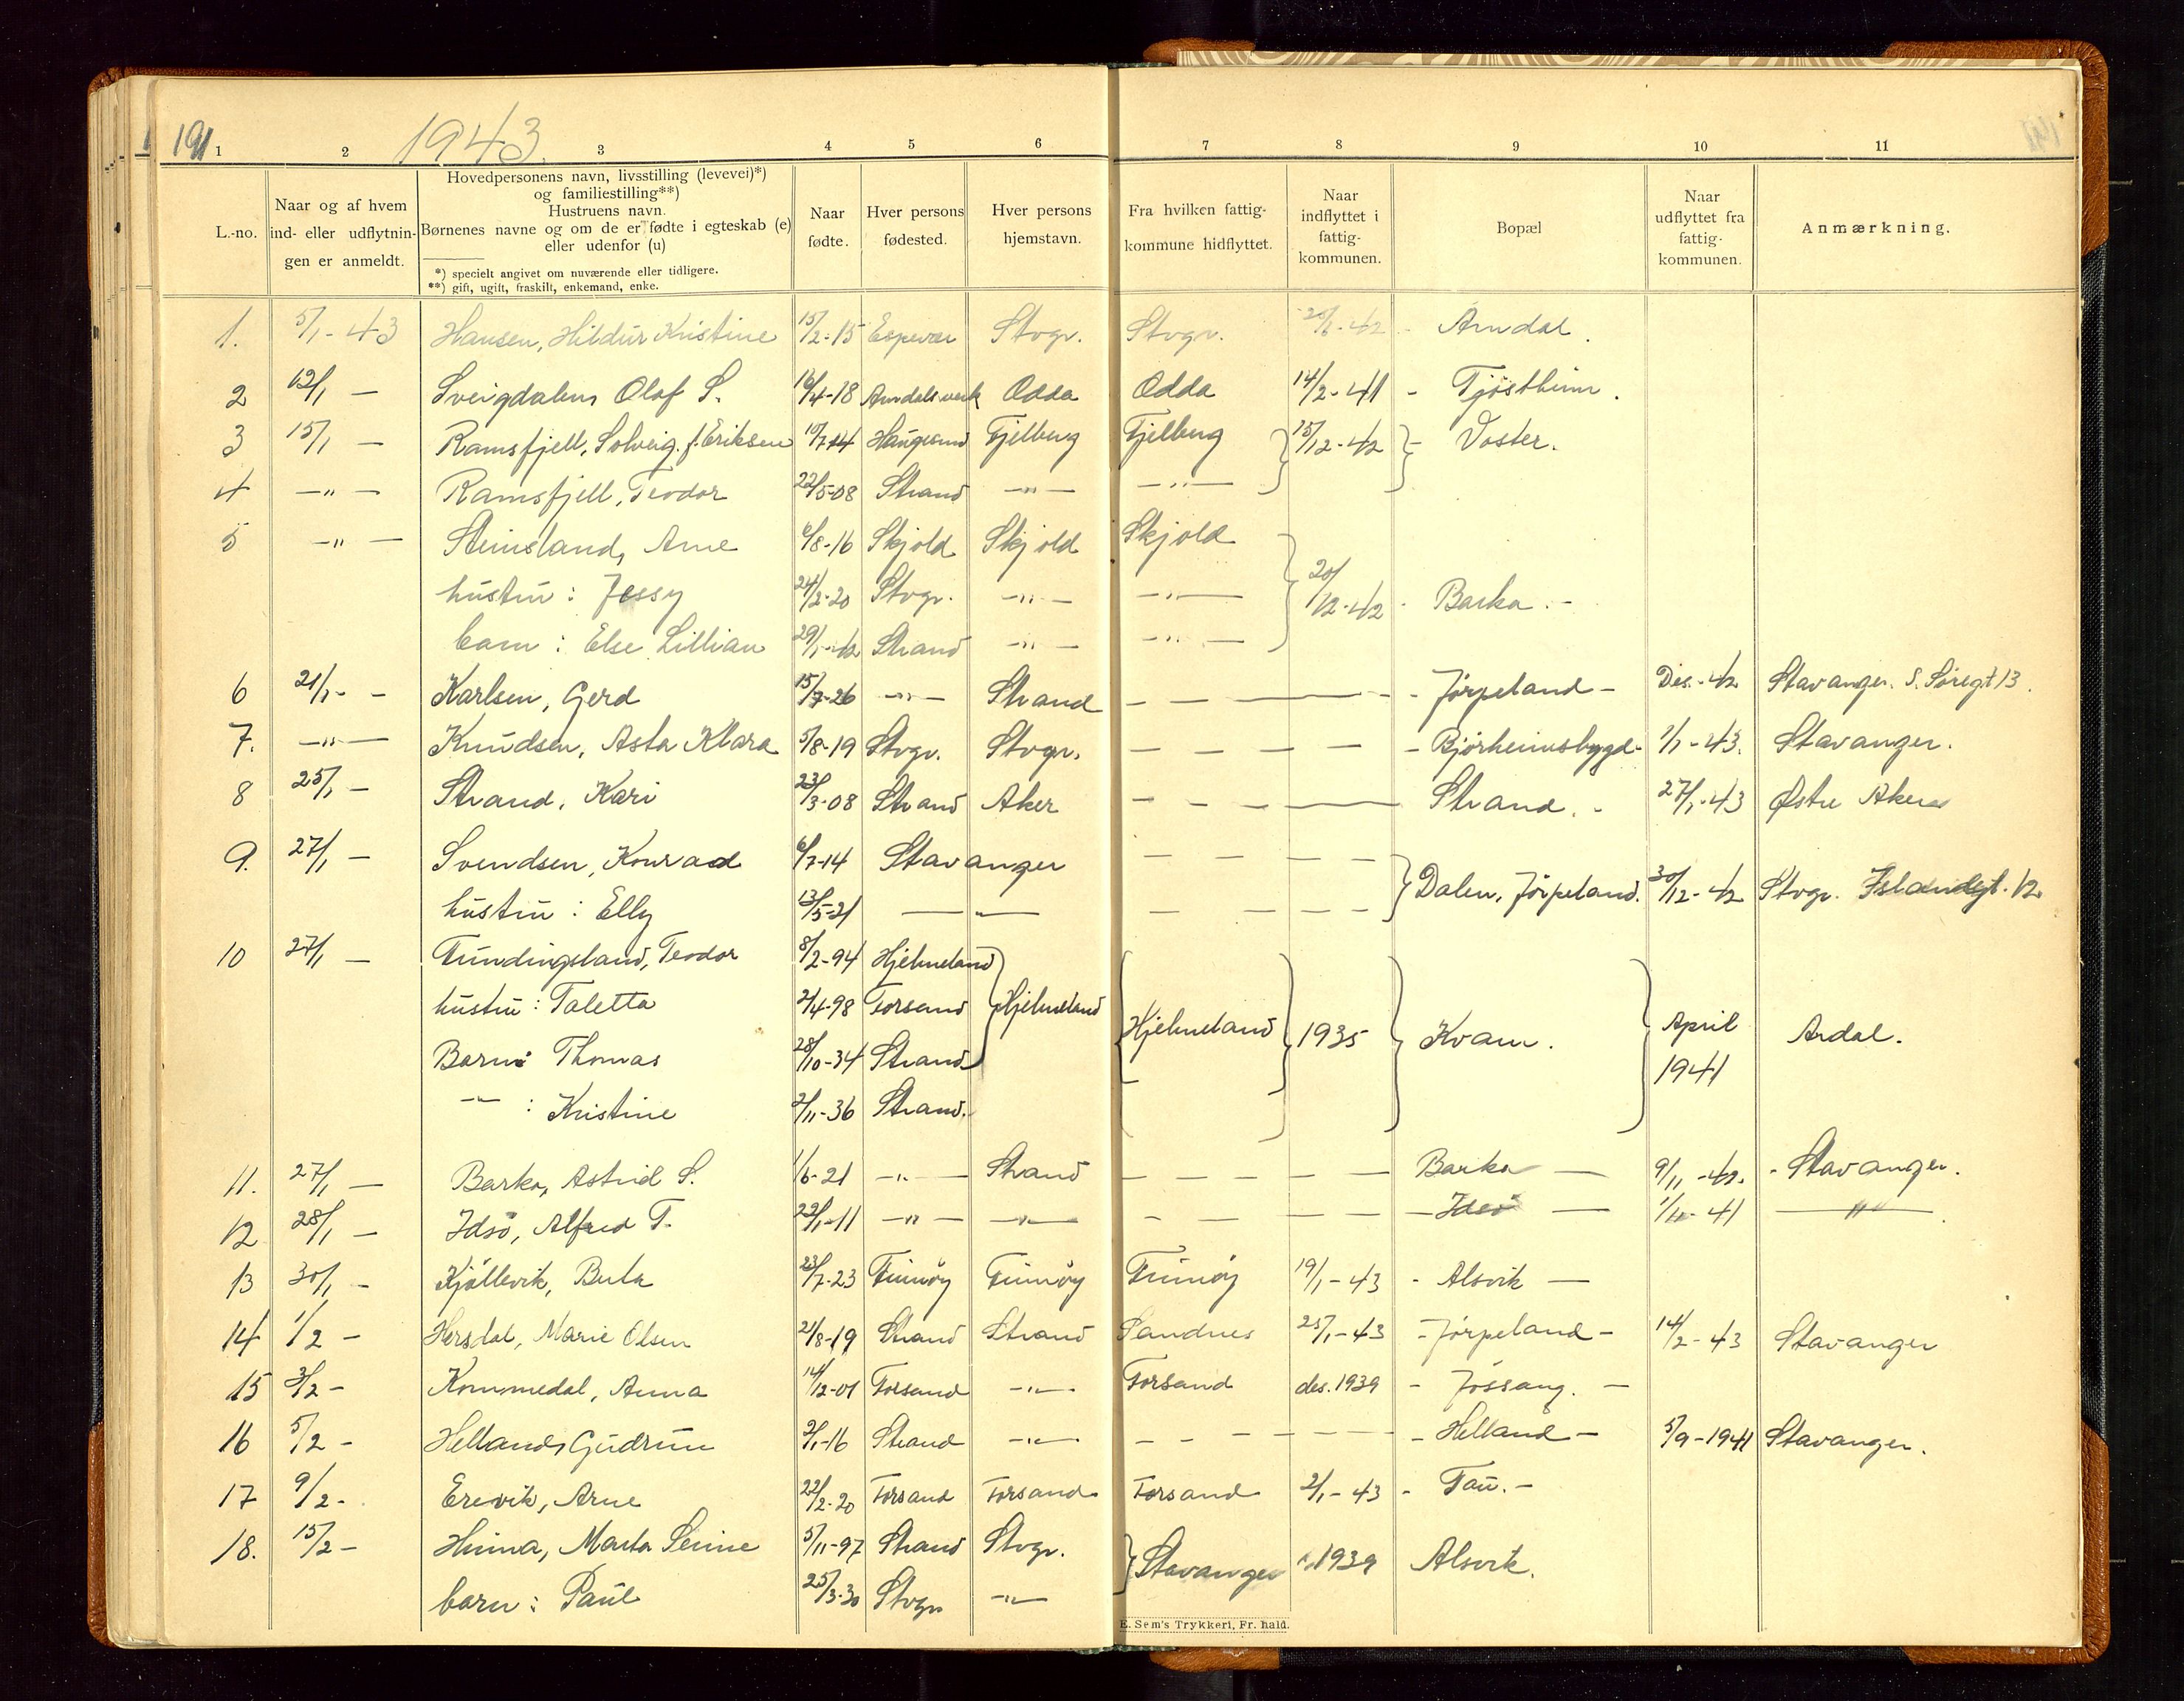 191 1943.
1 2 3 4 5 6 7 8 9 10 11
L.-no.
Naar og af hvem
ind- eller udflytnin-
gen er anmeldt.
Hovedpersonens navn, livsstilling (levevei)*)
og familiestilling**)
Hustruens navn.
Børnenes navne og om de er fødte i egteskab (e)
eller udenfor (u)
*) specielt angivet om nuværende eller tidligere.
**) gift, ugift, fraskilt, enkemand, enke.
Naar
fødte.
Hver persons
fødested.
Hver persons
hjemstavn.
Fra hvilken fattig-
kommune hidflyttet.
Naar
indflyttet i
fattig-
kommunen.
Bopæl
Naar
udflyttet fra
fattig-
kommunen.
Anmærkning.
1. 5/1-43 Hansen, Hildur Kristine 15/2-15 Espevær Stvgr. Stvgr. -42 - Årndal.
2 12/1 — Sveigdalen Olaf S. 16/4-18 Odda Odda 14/2-41 - Tjøstheim.
3 15/1 — Ramsfjell, Solveig f. Eriksen 10/7-14 Haugesund Fjelberg Fjelberg 15/12-42 - Voster.
4 —"— Ramsfjell, Teodor 22/5-08 Strand —"— —"—
5 —"— Steinsland, Arne 6/8-16 Skjold Skjold Skjold
hustru: Jessy 24/2-20 Stvgr. —"— —"— 20/12-42 - Barka. -
barn: Else Lillian 29/1-42 Strand —"— —"—
6 21/1 - - Karlsen, Gerd 15/7-26 —"— Strand — — - Jørpeland - Des.-42 Stavanger. S. Søregt 13.
7. —"— Knudsen, Asta Klara 5/8-19 Stvgr. Stvgr. — — — — - Bjørheimsbygd- 1/1-43. Stavanger.
8 25/1 - Strand, Kari 23/3-08 Strand Aker — — — Strand. - 27/1-43 Østre Aker
9. 27/1 — Svendsen, Konrad 6/7-14 Stavanger — — — —
hustru: Elly 13/5-21 —"— — — — — Dalen, Jørpeland. 30/12-42 Stvgr. Islandsgt. 12
10 27/1 — Fundingsland, Teodor 8/2-94 Hjelmeland
hustru: Taletta 2/4-98 Forsand Hjelmeland Hjelmeland 1935 Kvam. April 1941 Årdal.
Barn: Thomas 28/10-34 Strand
—"— : Kristine 2/11-36 Strand.
11. 27/1 — Barka, Astrid S. 1/6-21 —"— Strand — — — — Barka — 9/11-42. - Stavanger.
12 28/1 — Idsö, Alfred T. 22/1-11 —"— —"— — — — — - Idsö — 1/4-41 —"—
13 30/1 - Kjöllevik, Berta 23/7-23 Finnöy Finnöy Finnöy 19/1-43 - Alsvik —
14 1/2 - Hersdal, Marie Olsen 21/8-19 Strand Strand Sandnes 25/1-43 - Jørpeland - 14/2-43 Stavanger
15 3/2 - Kommedal, Anna 14/12-01 Forsand —"— Forsand des. 1939 - Jøssang. —
16 5/2 - Helland, Gudrun 2/1-16 Strand —"— — — — — - Helland - 5/9-1941 Stavanger.
17 9/2 - Erevik, Arne 22/2-20 Forsand Forsand Forsand 2/1-43 - Tau. -
18. 15/2 - Hinna, Marta Serine 5/11-97 Strand Stvgr. Stavanger 1939 Alsvik.
barn: Paul 25/3-30 Stvgr —"—
E. Sem's Trykkeri, Fr.hald.